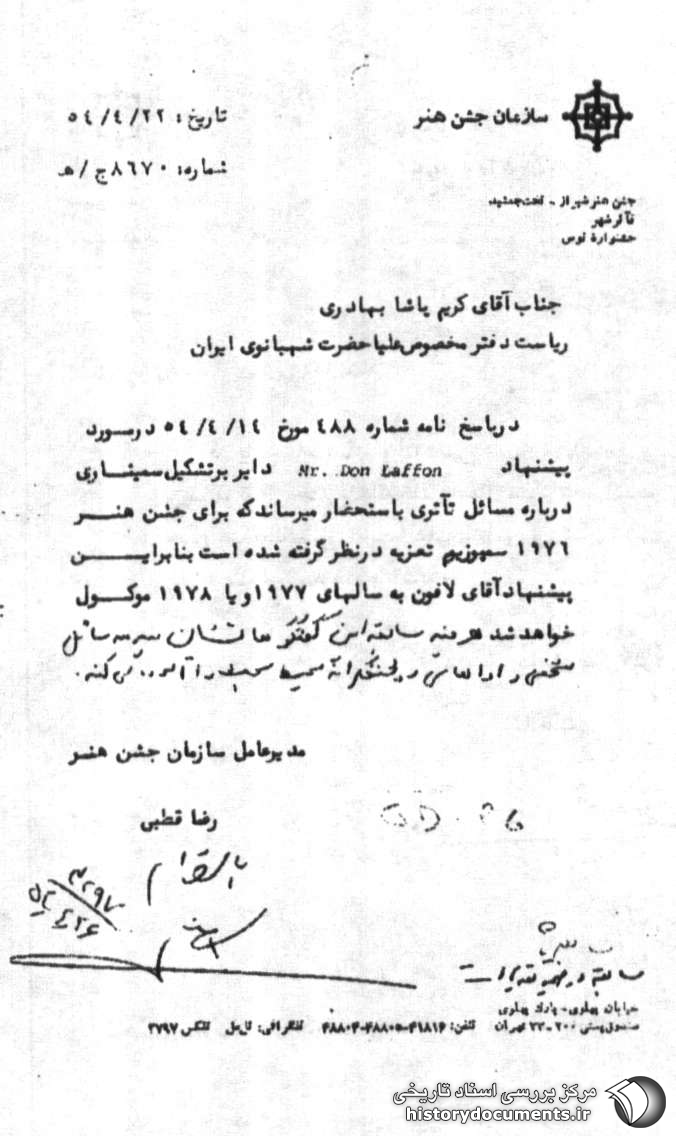 سازمان جشن هنر
تاریخ: ۵٤/٤/۲۲
شماره: ۸٦۷۰ج/هـ
جشن هنر شیراز - تخت‌جمشید
جشنوارهٔ توس
جناب آقای کریم پاشا بهادری
ریاست دفتر مخصوص علیاحضرت شهبانوی ایران
درپاسخ نامه شماره ٤۸۸ مورخ ۵٤/٤/۱٤ درمورد
پیشنهاد Mr. Don Laffon دایر برتشکیل سمیناری
درباره مسائل تآتری باستحضار میرساندکه برای جشن هنر
۱۹۷٦ سمپوزیم تعزیه درنظر گرفته شده است بنابراین
پیشنهادآقای لافون به سالهای ۱۹۷۷ ویا ۱۹۷۸ موکول
خواهدشد هرچند سابقه این گفتگوها نشان میدهد مسائل
شخصی و را محیط را میکند.
مدیرعامل سازمان جشن هنر
رضا قطبی
با احترام
۳۲۹۷
۵٤/٤/۲۶
خیابان پهلوی - پارک پهلوی
صندوق پستی ۲۰۰-۳۳ تهران تلفن: ٤۱۸۱۶-٤۸۸۰۵-٤۸۸۰٤ تلگرافی: تل‌مل تلکس ۲۷۹۷
مرکز بررسی اسناد تاریخی
historydocuments.ir